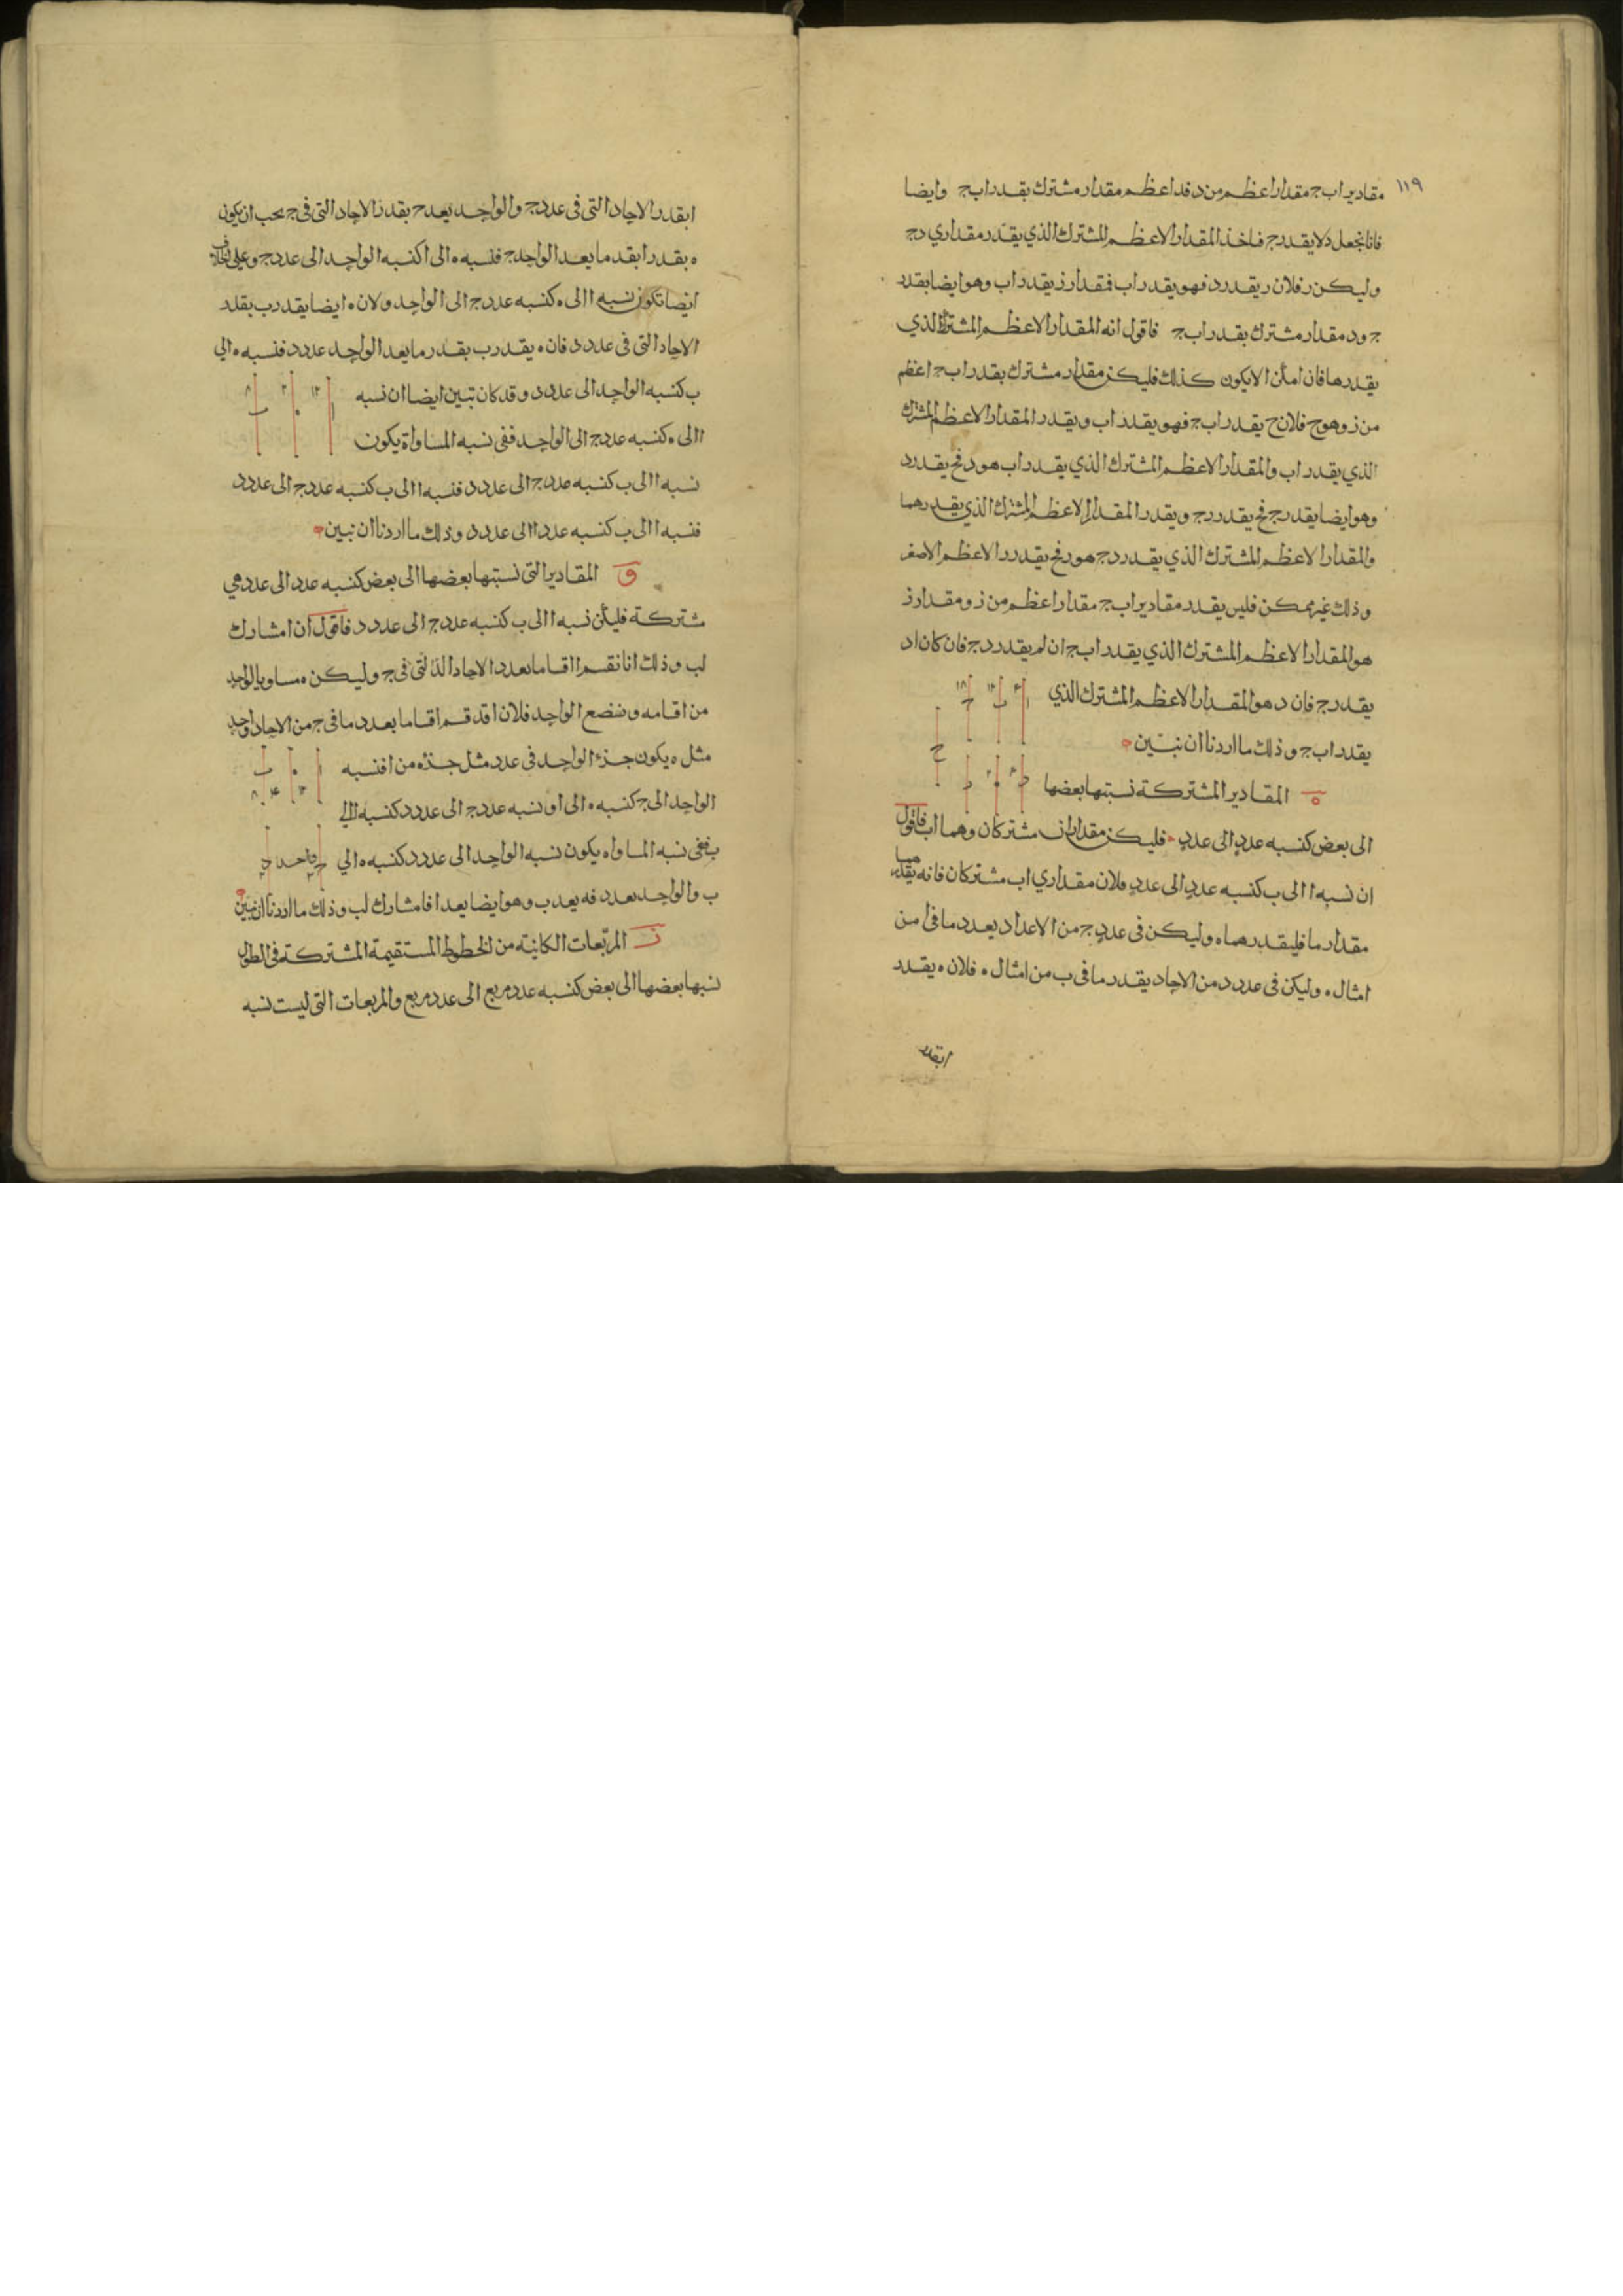 ١١٩
مقادير اب ج مقدار اعظم من د فد اعظم مقدار مشترك يقدر اب ج وايضا
فانا نجعل د لا يقدر ج فناخذ المقدار الاعظم المشترك الذي يقدر مقداري د ج
وليكن ر فلان ر يقدر د فهو يقدر اب فمقدار ز يقدر اب وهو ايضا يقدر
ج ود مقدار مشترك يقدر اب ج فاقول انه المقدار الاعظم المشترك الذي
يقدرها فان امكن الا يكون كذلك فليكن مقدار مشترك يقدر اب ج اعظم
من ز وهو ح فلان ح يقدر اب ج فهو يقدر اب ويقدر المقدار الاعظم المشترك
الذي يقدر اب والمقدار الاعظم المشترك الذي يقدر اب هو د فح يقدر د
وهو ايضا يقدر ج فح يقدر د ج ويقدر المقدار الاعظم المشترك الذي يقدرهما
والمقدار الاعظم المشترك الذي يقدر د ج هو ر فح يقدر ر الاعظم الاصغر
وذلك غير ممكن فليس يقدر مقادير اب ج مقدار اعظم من ز ومقدار ز
هو المقدار الاعظم المشترك الذي يقدر اب ج ان لم يقدر د ج فان كان اد
يقدر ج فان د هو المقدار الاعظم المشترك الذي
يقدر اب ج وذلك ما اردنا ان نبين
ه المقادير المشتركة نسبتها بعضها
الى بعض كنسبه عدد الى عدد فليكن مقداران مشتركان وهما اب فاقول
ان نسبه ا الى ب كنسبه عدد الى عدد فلان مقداري اب مشتركان فانه يقدرهما
مقدار ما فليقدرهما ه وليكن في عدد ج من الاعداد بعدد ما في ا من
امثال ه وليكن في عدد د من الاحاد بقدر ما في ب من امثال ه فلان ه يقدر
ا بقدر
ا بقدر الاحاد التي في عدد ج والواحد يعد ج بقدر الاحاد التي في ج يجب ان يكون
ه يقدر ا بقدر ما يعد الواحد ج فنسبه ه الى ا كنسبه الواحد الى عدد ج وعلى الخلاف
ايضا تكون نسبه ا الى ه كنسبه عدد ج الى الواحد ولان ه ايضا يقدر ب بقدر
الاحاد التي في عدد د فان ه يقدر ب بقدر ما يعد الواحد عدد د فنسبه ه الي
ب كنسبه الواحد الى عدد د وقد كان تبين ايضا ان نسبه
ا الى ه كنسبه عدد ج الى الواحد ففي نسبه المساواة يكون
نسبه ا الى ب كنسبه عدد ج الى عدد د فنسبه ا الى ب كنسبه عدد ج الى عدد د
فنسبه ا الى ب كنسبه عدد الى عدد وذلك ما اردنا ان نبين
و المقادير التي نسبتها بعضها الى بعض كنسبه عدد الى عدد هي
مشتركة فليكن نسبه ا الى ب كنسبه عدد ج الى عدد د فاقول ان ا مشارك
لب وذلك انا نقسم ا اقساما بعدد الاحاد التي في ج وليكن ه مساويا لواحد
من اقسامه ونضع الواحد فلان ا قد قسم اقساما بعدد ما في ج من الاحاد واحد
مثل ه يكون جزء الواحد في عدد مثل جزء ه من ا فنسبه
الواحد الى ج كنسبه ه الى ا و نسبه عدد ج الى عدد د كنسبه ا الي
ب ففي نسبه المساواه يكون نسبه الواحد الى عدد د كنسبه ه الي
ب والواحد يعد د فه يعد ب وهو ايضا يعد ا فا مشارك لب وذلك ما اردنا ان نبين
ز المربعات الكاينة من الخطوط المستقيمة المشتركة في الطول
نسبها بعضها الى بعض كنسبه عدد مربع الى عدد مربع والمربعات التي ليست نسبه